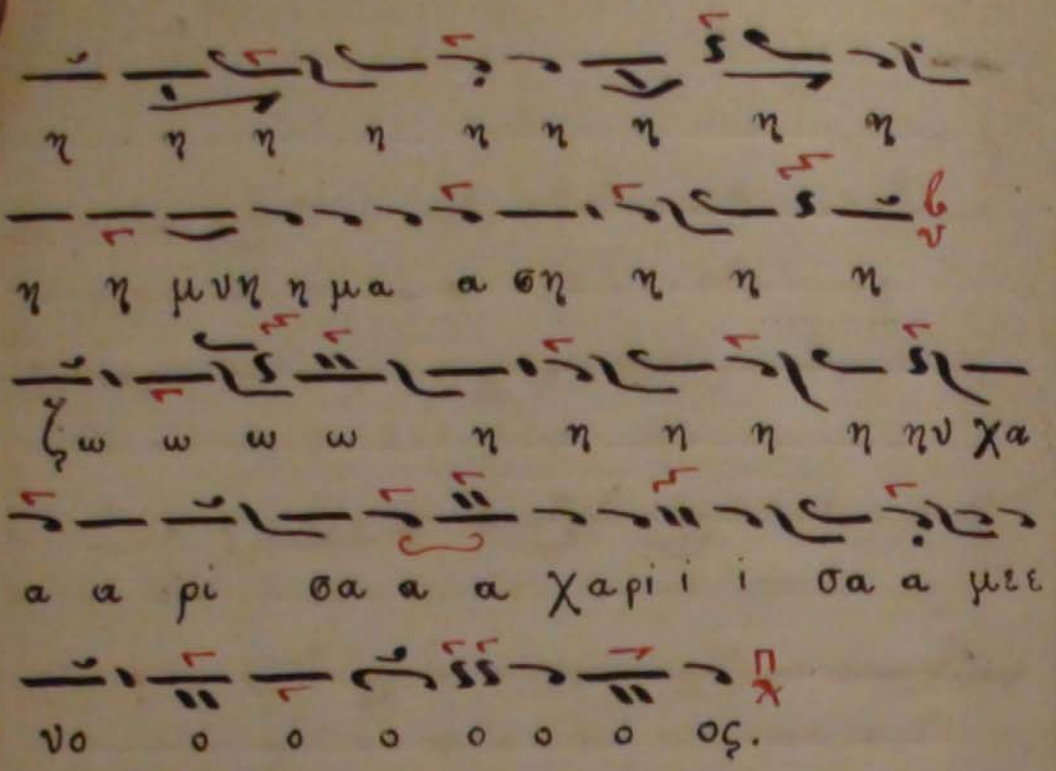 η η η η η η η η η
η η μνη η μα α ση η η η
ζω ω ω ω η η η η η ην χα
α α ρι σα α α χαρι ι ι σα α μεε
νο ο ο ο ο ο ο ος.